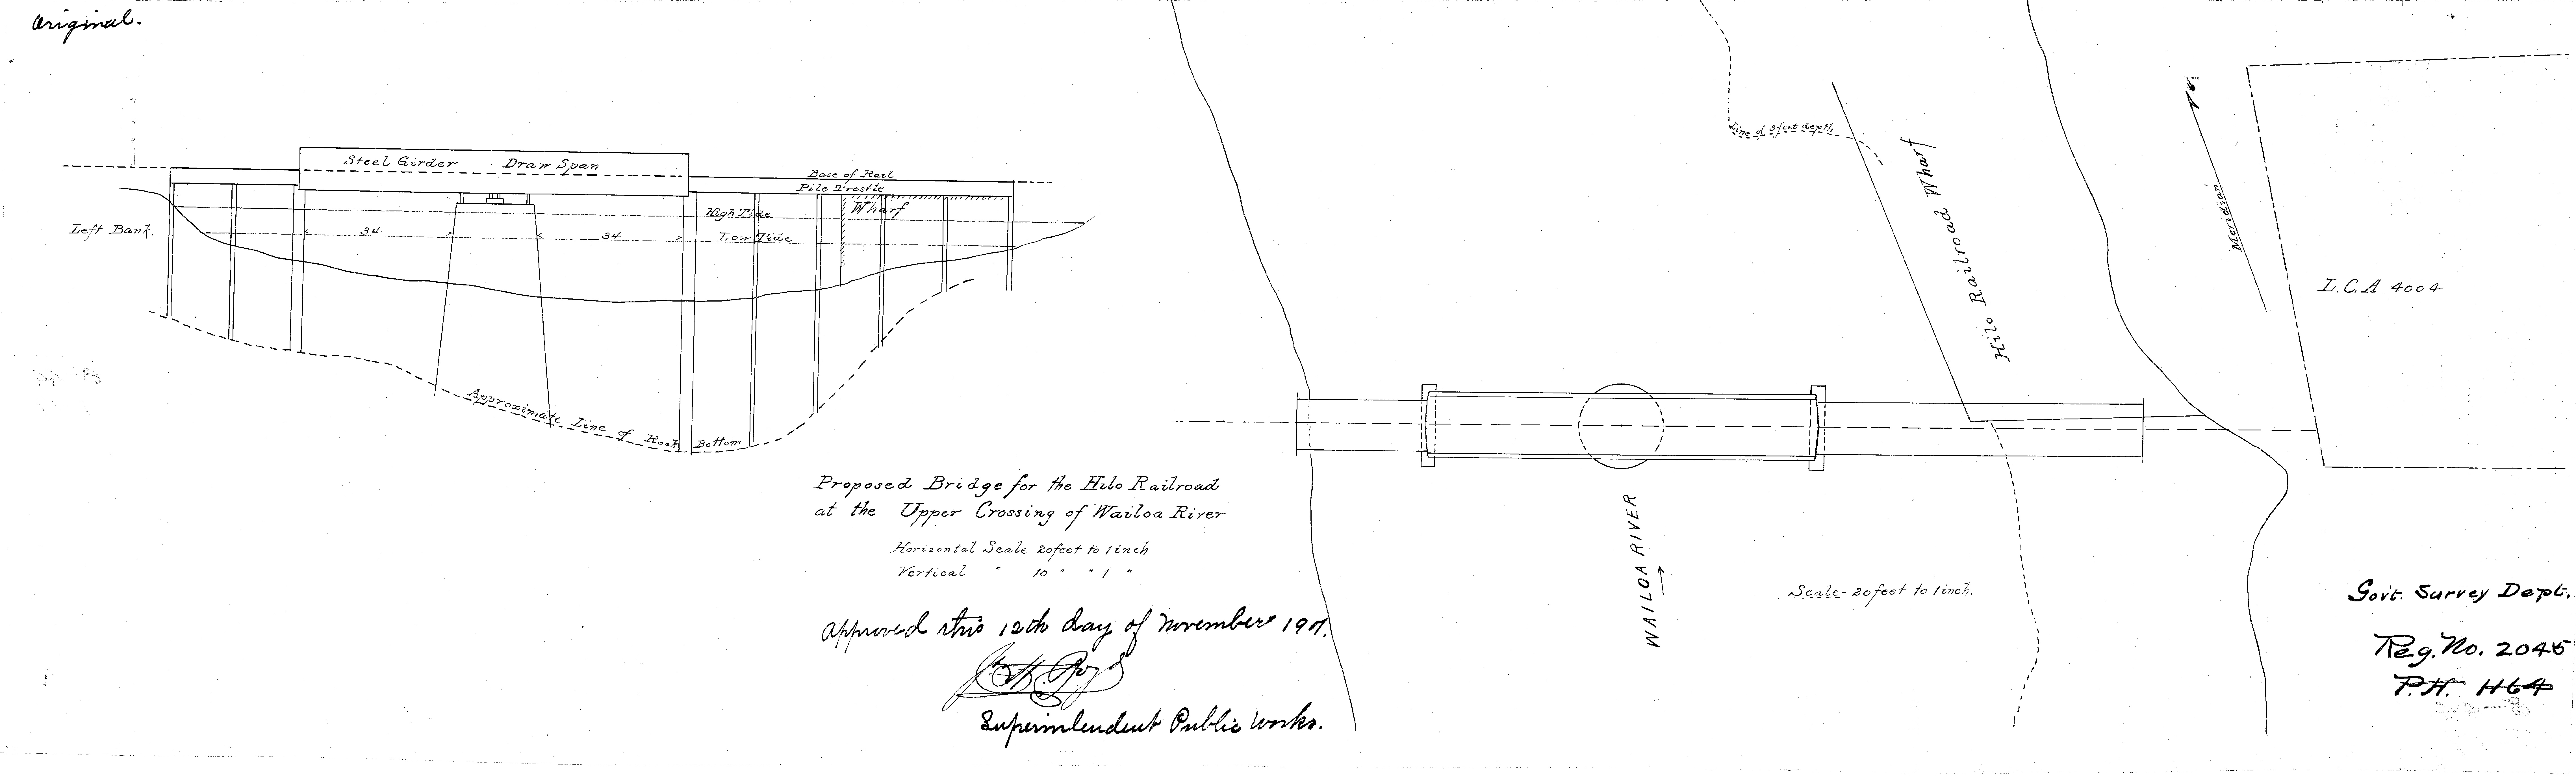 Original.
Steel Girder Draw Span
Base of Rail
Pile Trestle
High Tide
Wharf
Left Bank.
34
34
Low Tide
Approximate Line of Rock Bottom
Proposed Bridge for the Hilo Railroad
at the Upper Crossing of Wailoa River
Horizontal Scale 20 feet to 1 inch
Vertical " 10 " " 1 "
Approved this 12th day of November 1901.
Superintendent Public Works.
Line of 3 feet depth
Hilo Railroad Wharf
Meridian
L.C.A 4004
WAILOA RIVER
Scale - 20 feet to 1 inch.
Govt. Survey Dept.
Reg. No. 2045
P.H. 1164